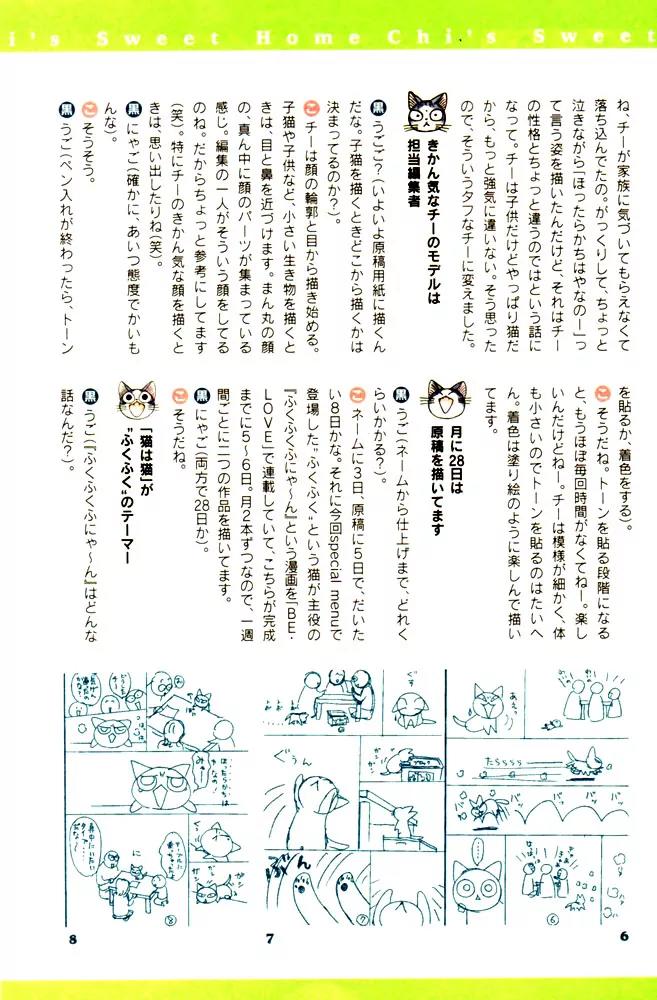 i's Sweet Home Chi's Sweet
ね、チーが家族に気づいてもらえなくて
落ち込んでたの。がっくりして、ちょっと
泣きながら「ほったらかちはやなのー」っ
て言う姿を描いたんだけど、それはチー
の性格とちょっと違うのではという話に
なって。チーは子供だけどやっぱり猫だ
から、もっと強気に違いない。そう思った
ので、そういうタフなチーに変えました。
きかん気なチーのモデルは
担当編集者
黒 うごご?(いよいよ原稿用紙に描くん
だな。子猫を描くときどこから描くかは
決まってるのか?)。
こ チーは顔の輪郭と目から描き始める。
子猫や子供など、小さい生き物を描くと
きは、目と鼻を近づけます。まん丸の顔
の、真ん中に顔のパーツが集まっている
感じ。編集の一人がそういう顔をしてる
のね。だからちょっと参考にしてます
(笑)。特にチーのきかん気な顔を描くと
きは、思い出したりね(笑)。
黒 にゃご(確かに、あいつ態度でかいも
んな)。
こ そうそう。
黒 うご(ペン入れが終わったら、トーン
を貼るか、着色をする)。
こ そうだね。トーンを貼る段階になる
と、もうほぼ毎回時間がなくてねー。楽し
いんだけどねー。チーは模様が細かく、体
も小さいのでトーンを貼るのはたいへ
ん。着色は塗り絵のように楽しんで描い
てます。
月に28日は
原稿を描いてます
黒 うご(ネームから仕上げまで、どれく
らいかかる?)。
こ ネームに3日、原稿に5日で、だいた
い8日かな。それに今回special menuで
登場した“ふくふく”という猫が主役の
『ふくふくふにゃ〜ん』という漫画を「BE・
LOVE」で連載していて、こちらが完成
までに5〜6日。月2本ずつなので、一週
間ごとに二つの作品を描いてます。
黒 にゃご(両方で28日か)。
こ そうだね。
「猫は猫」が
“ふくふく”のテーマ
黒 うご(『ふくふくふにゃ〜ん』はどんな
話なんだ?)。
あえっ
たららららら
バッ
バッ
バッ
⑥
ぐす
ぐぅん
ぶん
⑦
みゃー
に
⑧
8
7
6